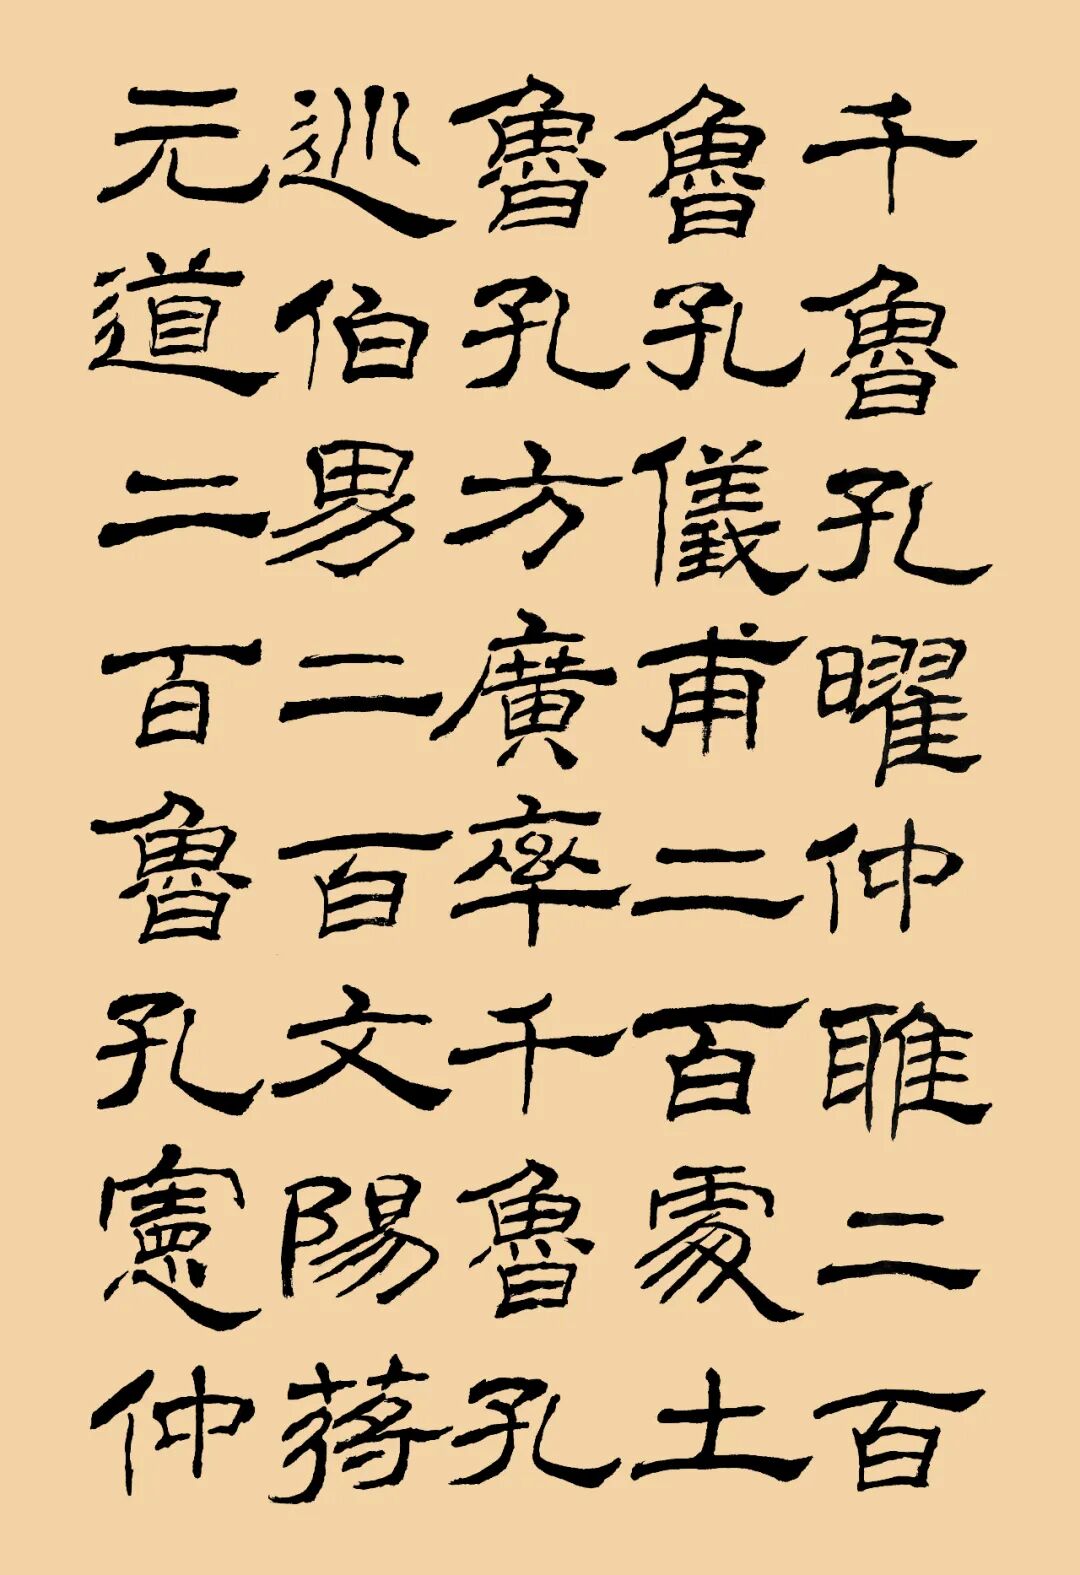 千魯孔曜仲雎二百
魯孔儀甫二百處土
魯孔方廣率千魯孔
巡伯男二百文陽蔣
元道二百魯孔憲仲